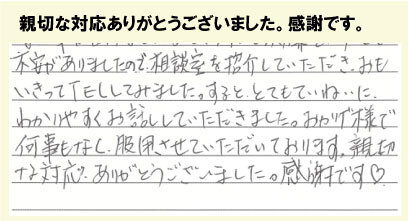 親切な対応ありがとうございました。感謝です。
不安がありましたので、相談室を紹介していただき、おも
いきってTELしてみました。すると、とてもていねいに、
わかりやすくお話ししていただきました。おかげ様で
何事もなく、服用させていただいております。親切
な対応、ありがとうございました。感謝です♡